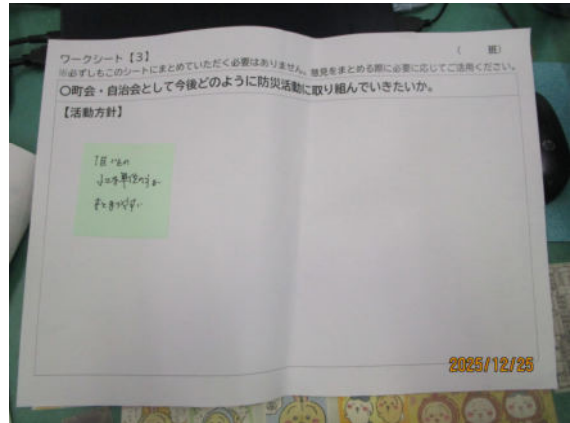 ワークシート【3】
(　　班)
※必ずしもこのシートにまとめていただく必要はありません。意見をまとめる際に必要に応じてご活用ください。
〇町会・自治会として今後どのように防災活動に取り組んでいきたいか。
【活動方針】
2025/12/25